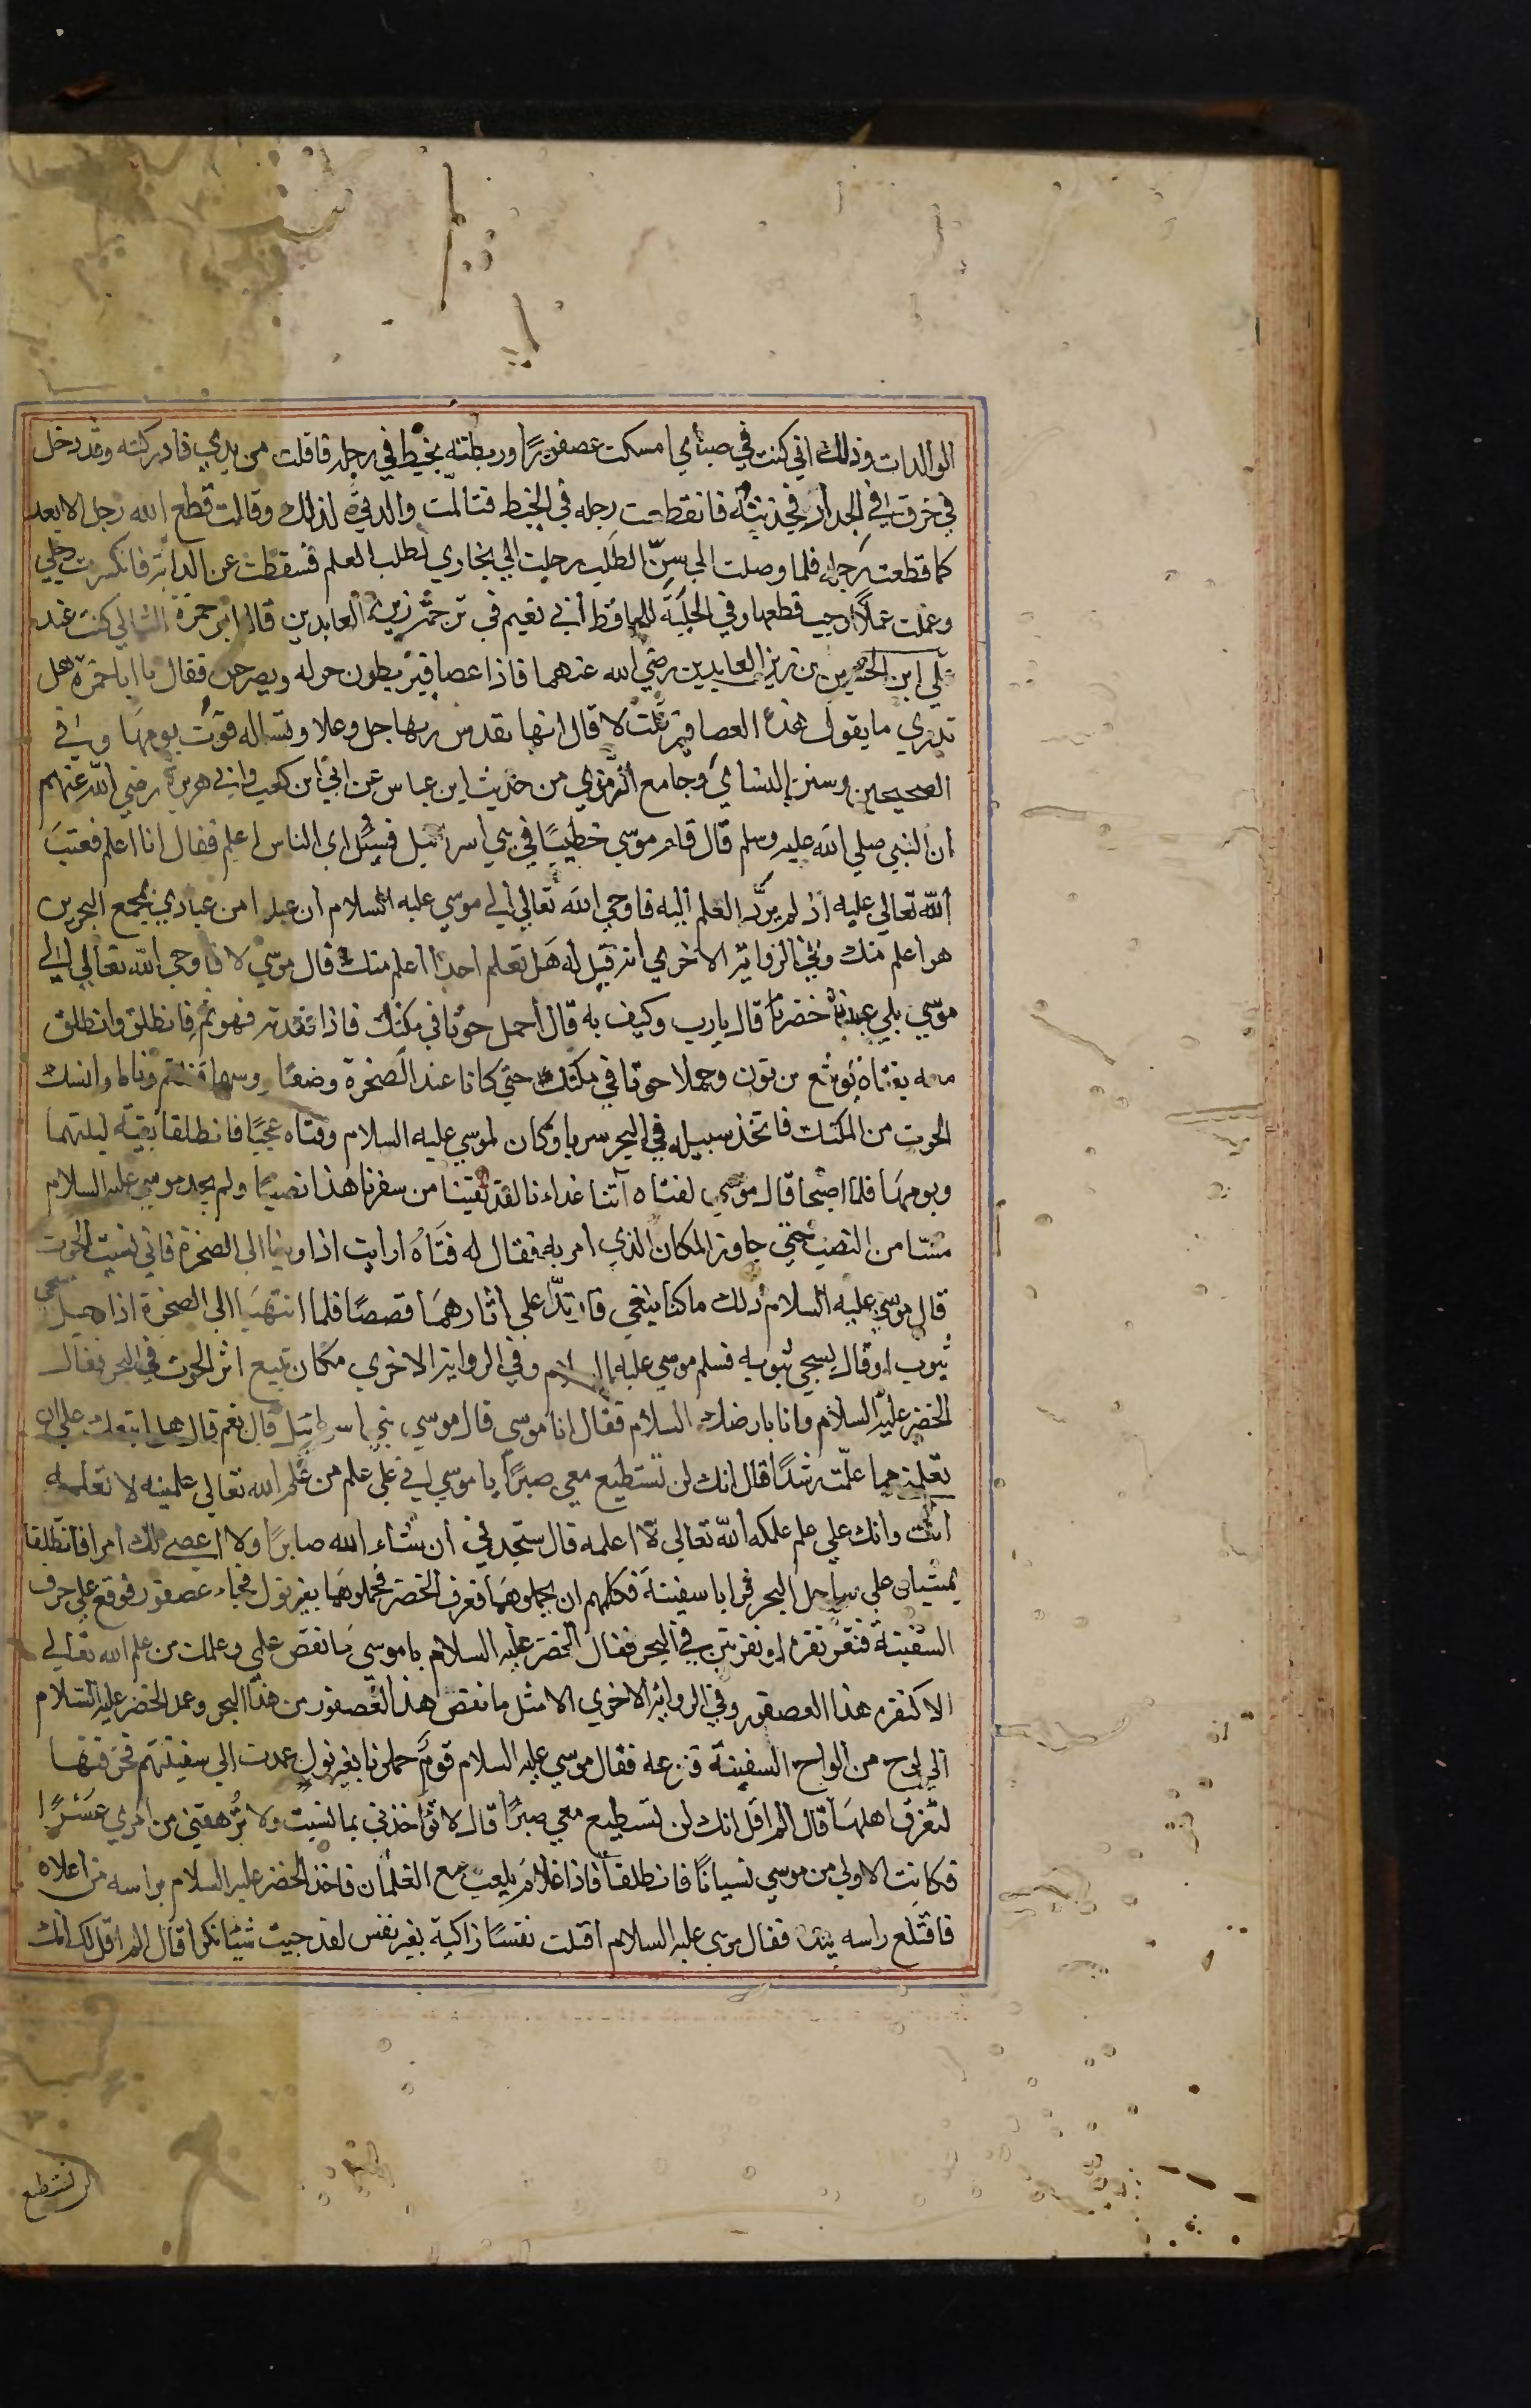 الوالدات وذلك اني كنت في صباي امسكت عصفورًا وربطته بخيط في رجله فاقلت من يدي فادركته وقد دخل
في خرق في الجدار فجذبته فانقطعت رجله في الخيط فتالمت والدتي لذلك وقالت قطع الله رجل الابعد
كما قطعت رجله فلما وصلت الي سن الطلب رحلت الي بخاري لطلب العلم فسقطت عن الدابة فانكسرت رجلي
وعملت عملا اوجب قطعها وفي الحلية للحافظ ابي نعيم في ترجمة زين العابدين قال ابو حمزة الثمالي كنت عند
علي ابن الحسين زين العابدين رضي الله عنهما فاذا عصافير يطون حوله ويصرخن فقال يا ابا حمزة هل
تدري ما يقول هذه العصافير قلت لا قال انها تقدس ربها جل وعلا وتساله قوت يومها وفي
الصحيحين وسنن النساي وجامع الترمذي من حديث ابن عباس عن ابي ابن كعب وابي هريرة رضي الله عنهم
ان النبي صلي الله عليه وسلم قال قام موسي خطيبًا في بني اسرائيل فسئل اي الناس اعلم فقال انا اعلم فعتب
الله تعالي عليه اذ لم يرد العلم اليه فاوحي الله تعالي الي موسي عليه السلام ان عبدا من عبادي بمجمع البحرين
هو اعلم منك وفي الرواية الاخري انه قيل له هل تعلم احدا اعلم منك قال موسي لا فاوحي الله تعالي الي
موسي بلي عبدنا خضر قال يارب وكيف به قال احمل حوتا في مكتل فاذا فقدته فهو ثم فانطلق وانطلق
معه بفتاه يوشع بن نون وحملا حوتا في مكتل حتي كانا عند الصخرة وضعا روسهما وناما وانسل
الحوت من المكتل فاتخذ سبيله في البحر سربا وكان لموسي عليه السلام وفتاه عجبًا فانطلقا بقية ليلتهما
ويومهما فلما اصبحا قال موسي لفتاه آتنا غداءنا لقد لقينا من سفرنا هذا نصبا ولم يجد موسي عليه السلام
مسّا من النصب حتي جاوز المكان الذي امر به فقال له فتاه ارايت اذ اوينا الي الصخرة فاني نسيت الحوت
قال موسي عليه السلام ذلك ما كنا نبغي فارتدّا علي اثارهما قصصًا فلما انتهيا الي الصخرة اذا رجل مسجي
بثوب او قال يسجي بثوبه فسلم موسي عليه السلام وفي الرواية الاخري مكان يتبع اثر الحوت في البحر فقال
الخضر عليه السلام وانا بارضك السلام فقال انا موسي قال موسي بني اسرائيل قال نعم قال هل اتبعك علي ان
تعلمني مما علمت رشدًا قال انك لن تستطيع معي صبرًا يا موسي اني علي علم من علم الله تعالي علمنيه لا تعلمه
انت وانك علي علم علمكه الله تعالي لا اعلمه قال ستجدني ان شاء الله صابرًا ولا اعصي لك امرا فانطلقا
يمشيان علي ساحل البحر فرايا سفينة فكلمهم ان يحملوهما فعرف الخضر فحملوهما بغير نول فجاء عصفور فوقع علي حرف
السفينة فنقر نقرة او نقرتين في البحر فقال الخضر عليه السلام يا موسي ما نقص علمي وعلمك من علم الله تعالي
الا كنقرة هذا العصفور وفي الرواية الاخري الا مثل ما نقص هذا العصفور من هذا البحر وعمد الخضر عليه السلام
الي لوح من الواح السفينة فنزعه فقال موسي عليه السلام قوم حملونا بغير نول عمدت الي سفينتهم فخرقتها
لتغرق اهلها قال الم اقل انك لن تستطيع معي صبرًا قال لا تؤاخذني بما نسيت ولا ترهقني من امري عسرًا
فكانت الاولي من موسي نسيانًا فانطلقا فاذا غلام يلعب مع الغلمان فاخذ الخضر عليه السلام براسه من اعلاه
فاقتلع راسه بيده فقال موسي عليه السلام اقتلت نفسًا زاكية بغير نفس لقد جيت شيئا نكرا قال الم اقل لك انك
لن تستطيع